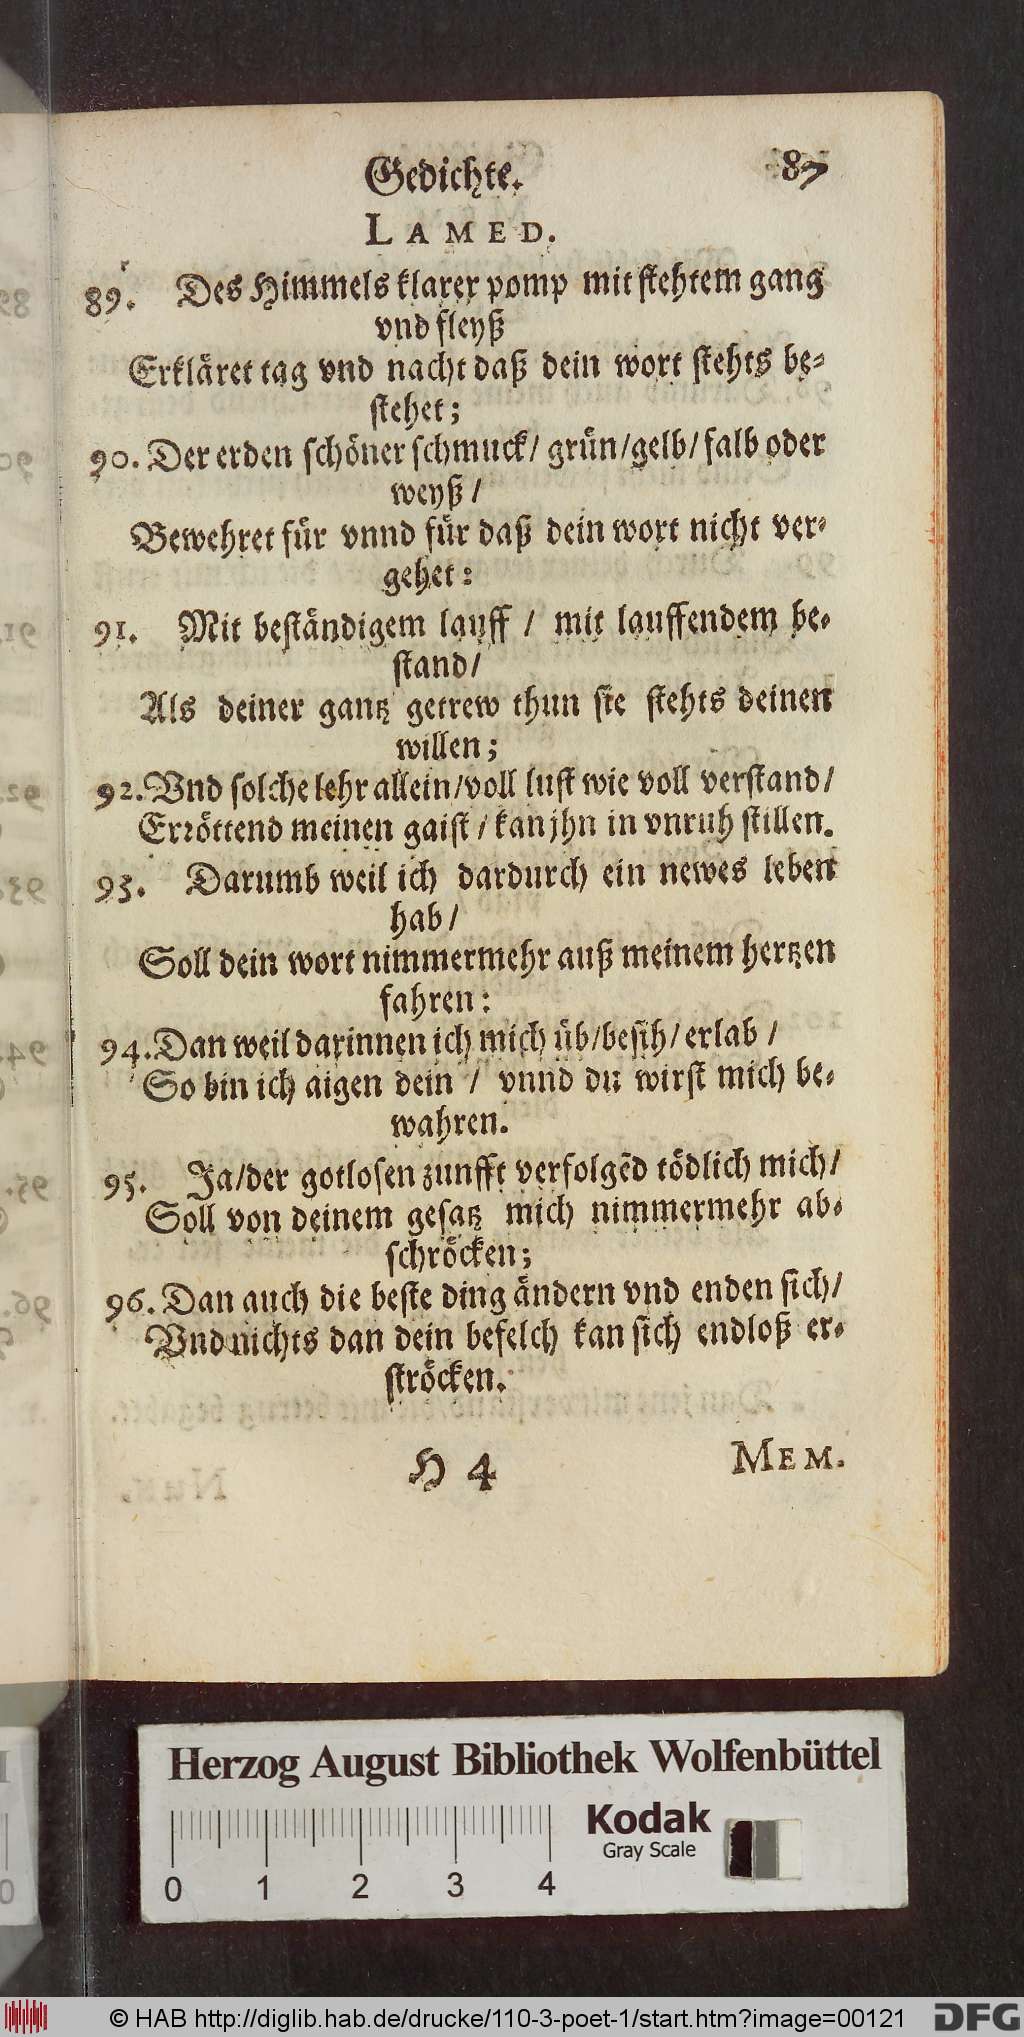 Gedichte. 87
LAMED.
89. Des Himmels klarer pomp mit stehtem gang
vnd fleyß
Erkläret tag vnd nacht daß dein wort stehts be-
stehet;
90. Der erden schöner schmuck/ grün/gelb/falb oder
weyß/
Bewehret für vnnd für daß dein wort nicht ver-
gehet:
91. Mit beständigem lauff / mit lauffendem be-
stand/
Als deiner gantz getrew thun sie stehts deinen
willen;
92. Vnd solche lehr allein/voll lust wie voll verstand/
Erröttend meinen gaist / kan jhn in vnruh stillen.
93. Darumb weil ich dardurch ein newes leben
hab/
Soll dein wort nimmermehr auß meinem hertzen
fahren:
94. Dan weil darinnen ich mich üb/besih/erlab /
So bin ich aigen dein / vnnd du wirst mich be-
wahren.
95. Ja/der gotlosen zunfft verfolgēd tödlich mich/
Soll von deinem gesatz mich nimmermehr ab-
schröcken;
96. Dan auch die beste ding ändern vnd enden sich/
Vnd nichts dan dein befelch kan sich endloß er-
ströcken.
H 4 MEM.
Herzog August Bibliothek Wolfenbüttel
Kodak
Gray Scale
0 1 2 3 4
© HAB http://diglib.hab.de/drucke/110-3-poet-1/start.htm?image=00121
DFG